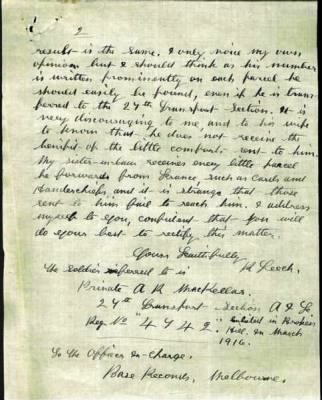 2
result is the same. I only voice my own
opinion but I should think as his number
is written prominently on each parcel he
should easily be found, even if he is trans-
ferred to the 27th Transport Section. It is
very discouraging to me, and to his wife
to know that he does not receive the
benifit of the little comforts sent to him.
My sister-in-law receives every little parcel
he forwards from France, such as Cards and
Handerchiefs, and it is strange that those
sent to him fail to reach him. I address
myself to you, confident that you will
do your best to rectify this matter.
Yours Faithfully
R Leech.
The soldier referred to is
Private A R MacKellar.
27th Transport Section A I F
Reg. No "4742" Enlisted in Broken
Hill. in March
1916.
To the Officer in-Charge.
Base Records, Melbourne.